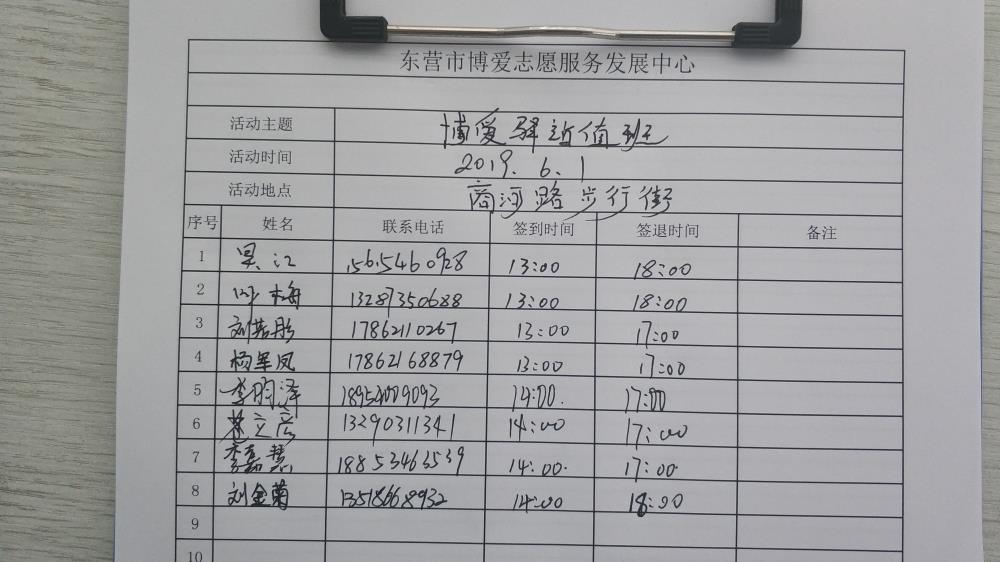 东营市博爱志愿服务发展中心
活动主题 博爱驿站值班
活动时间 2019.6.1
活动地点 商河路步行街
序号 姓名 联系电话 签到时间 签退时间 备注
1 吴江 15615460928 13:00 18:00
2 梅 13287350688 13:00 18:00
3 刘若彤 17862110267 13:00 17:00
4 杨军凤 17862168879 13:00 17:00
5 李明泽 18954009093 14:00. 17:00
6 立彦 13290311341 14:00 17:00
7 李嘉慧 18853463539 14:00. 17:00
8 刘金菊 13518668932 14:00 18:00
9
10